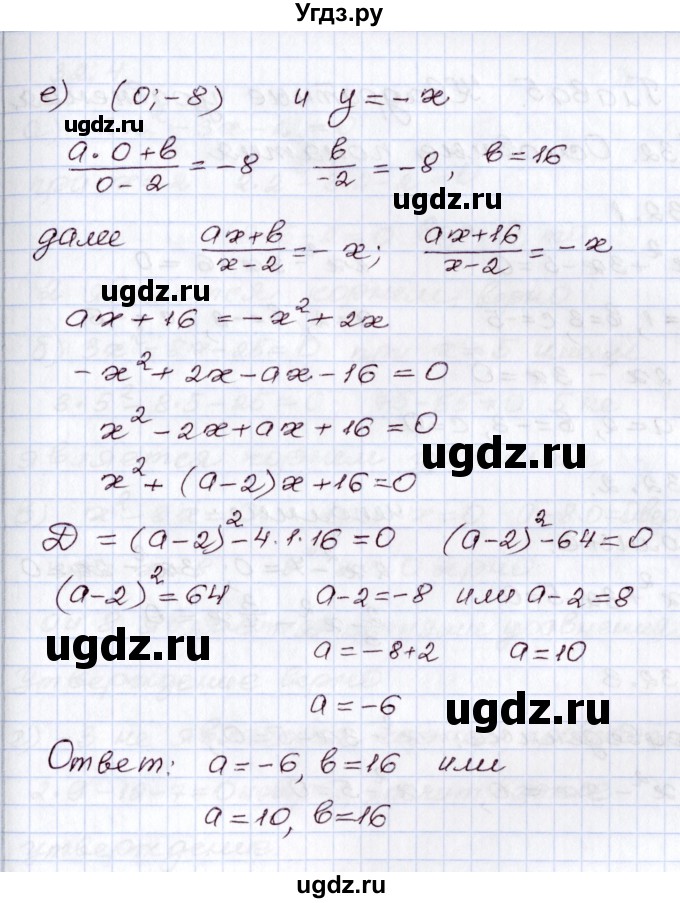 Угдз.ру
е) (0; -8) и y = -x
ugdz.ru
(a·0+b)/(0-2) = -8   b/(-2) = -8, b = 16
ugdz.ru
далее (ax+b)/(x-2) = -x; (ax+16)/(x-2) = -x
ugdz.ru
ax + 16 = -x² + 2x
-x² + 2x - ax - 16 = 0
x² - 2x + ax + 16 = 0
ugdz.ru
x² + (a-2)x + 16 = 0
D = (a-2)² - 4·1·16 = 0   (a-2)² - 64 = 0
(a-2)² = 64   a-2 = -8 или a-2 = 8
ugdz.ru
a = -8+2   a = 10
a = -6
ugdz.ru
Ответ: a = -6, b = 16 или
a = 10, b = 16
ugdz.ru